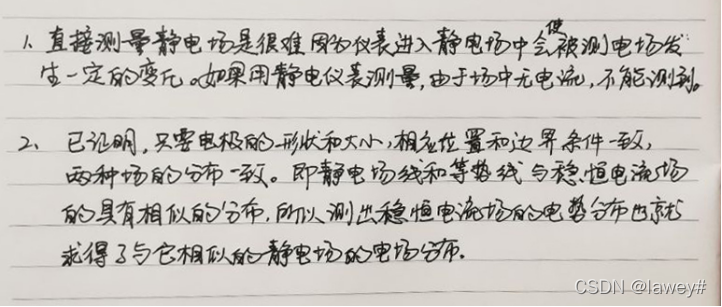 1、直接测量静电场是很难因为仪表进入静电场中会使被测电场发
生一定的变化。如果用静电仪表测量，由于场中无电流，不能测到。
2、已证明，只要电极的形状和大小，相应位置和边界条件一致，
两种场的分布一致。即静电场线和等势线与稳恒电流场
的具有相似的分布，所以测出稳恒电流场的电势分布也就
求得了与它相似的静电场的电场分布.
CSDN @lawey#